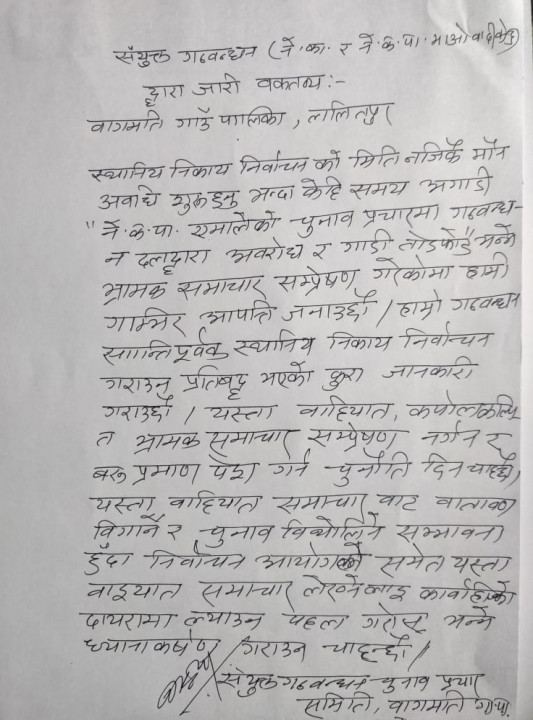 संयुक्त गठवन्धन (ने.का. र ने.क.पा. माओवादीकेन्द्र)
द्वारा जारी वक्तव्य:-
वागमति गाउँ पालिका, ललितपुर
स्थानिय निकाय निर्वाचन को मिति नजिकै मौन
अवधि शुरु हुनु भन्दा केहि समय अगाडी
"ने.क.पा. एमालेको चुनाव प्रचारमा गठवन्ध-
न दलद्वारा अवरोध र गाडी तोडफोड" भन्ने
भ्रामक समाचार सम्प्रेषण गरेकोमा हामी
गाम्भिर आपत्ति जनाउछौं । हाम्रो गठवन्धन
सान्तिपूर्वक स्थानिय निकाय निर्वाचन
गराउनु प्रतिबद्ध भएको कुरा जानकारी
गराउछौं । यस्ता वाहियात, कपोलकल्पि
त भ्रामक समाचार सम्प्रेषण नगर्न र
बरु प्रमाण पेश गर्न चुनौति दिन चाहन्छौं,
यस्ता वाहियात समाचार वाट वातावरण
विगार्ने र चुनाव विथोलिने सम्भावना
हुँदा निर्वाचन आयोगको समेत यस्ता
वाइयात समाचार लेख्नेलाइ कार्वाहीको
दायरामा ल्याउन पहल गरोस् भन्ने
ध्यानाकर्षण गराउन चाहन्छौं ।
संयुक्त गठवन्धन चुनाव प्रचार
समिति, वागमति गा.पा.